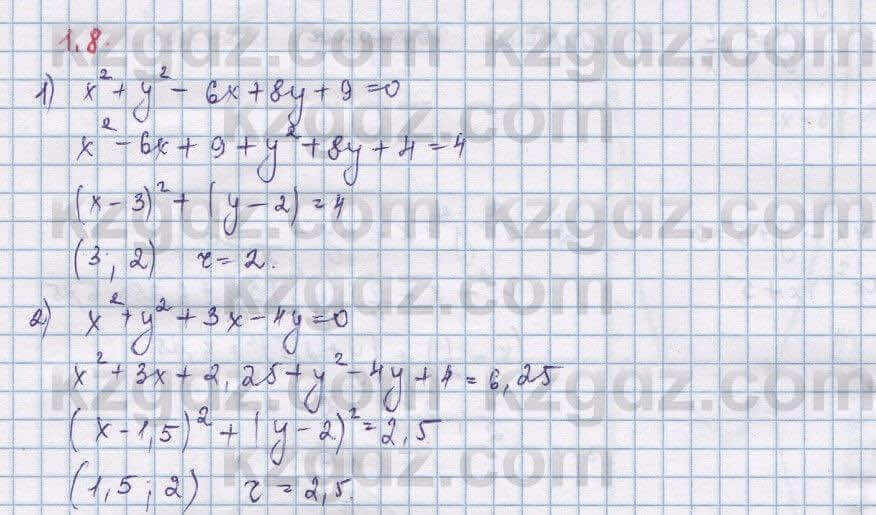 1.8.
1) x² + y² - 6x + 8y + 9 = 0
x² - 6x + 9 + y² + 8y + 4 = 4
(x - 3)² + (y - 2) = 4
(3; 2) r = 2.
2) x² + y² + 3x - 4y = 0
x² + 3x + 2,25 + y² - 4y + 4 = 6,25
(x - 1,5)² + (y - 2)² = 2,5
(1,5; 2) r = 2,5.
kzgdz.com kzgdz.com
kzgdz.com
kzgdz.com kzgdz.com
kzgdz.com
kzgdz.com kzgdz.com
kzgdz.com